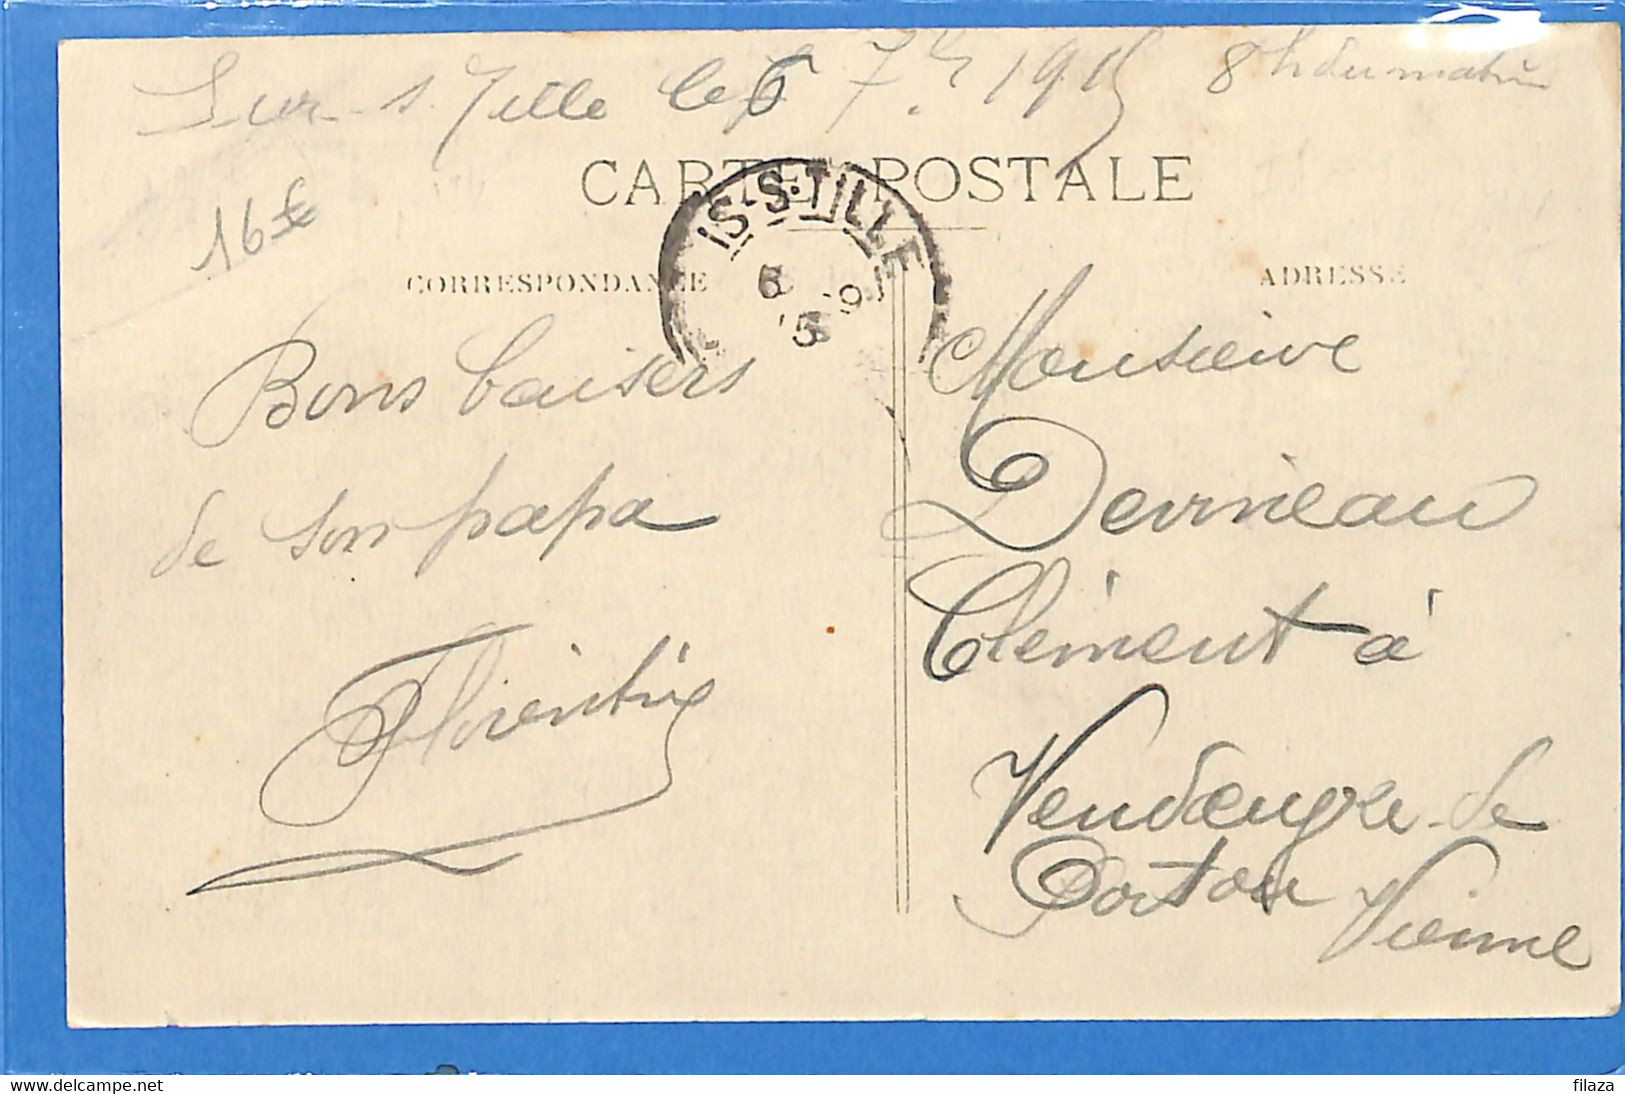 Sur-s. Tille le 6 7bre 1915 8h du matin
CARTE POSTALE
IS-S-TILLE
6 -9
15
16€
CORRESPONDANCE
ADRESSE
Bons baisers
de son papa
Florentin
Monsieur
Derrineau
Clément à
Vendeuvre-de
Poitou Vienne
delcampe.net
filaza